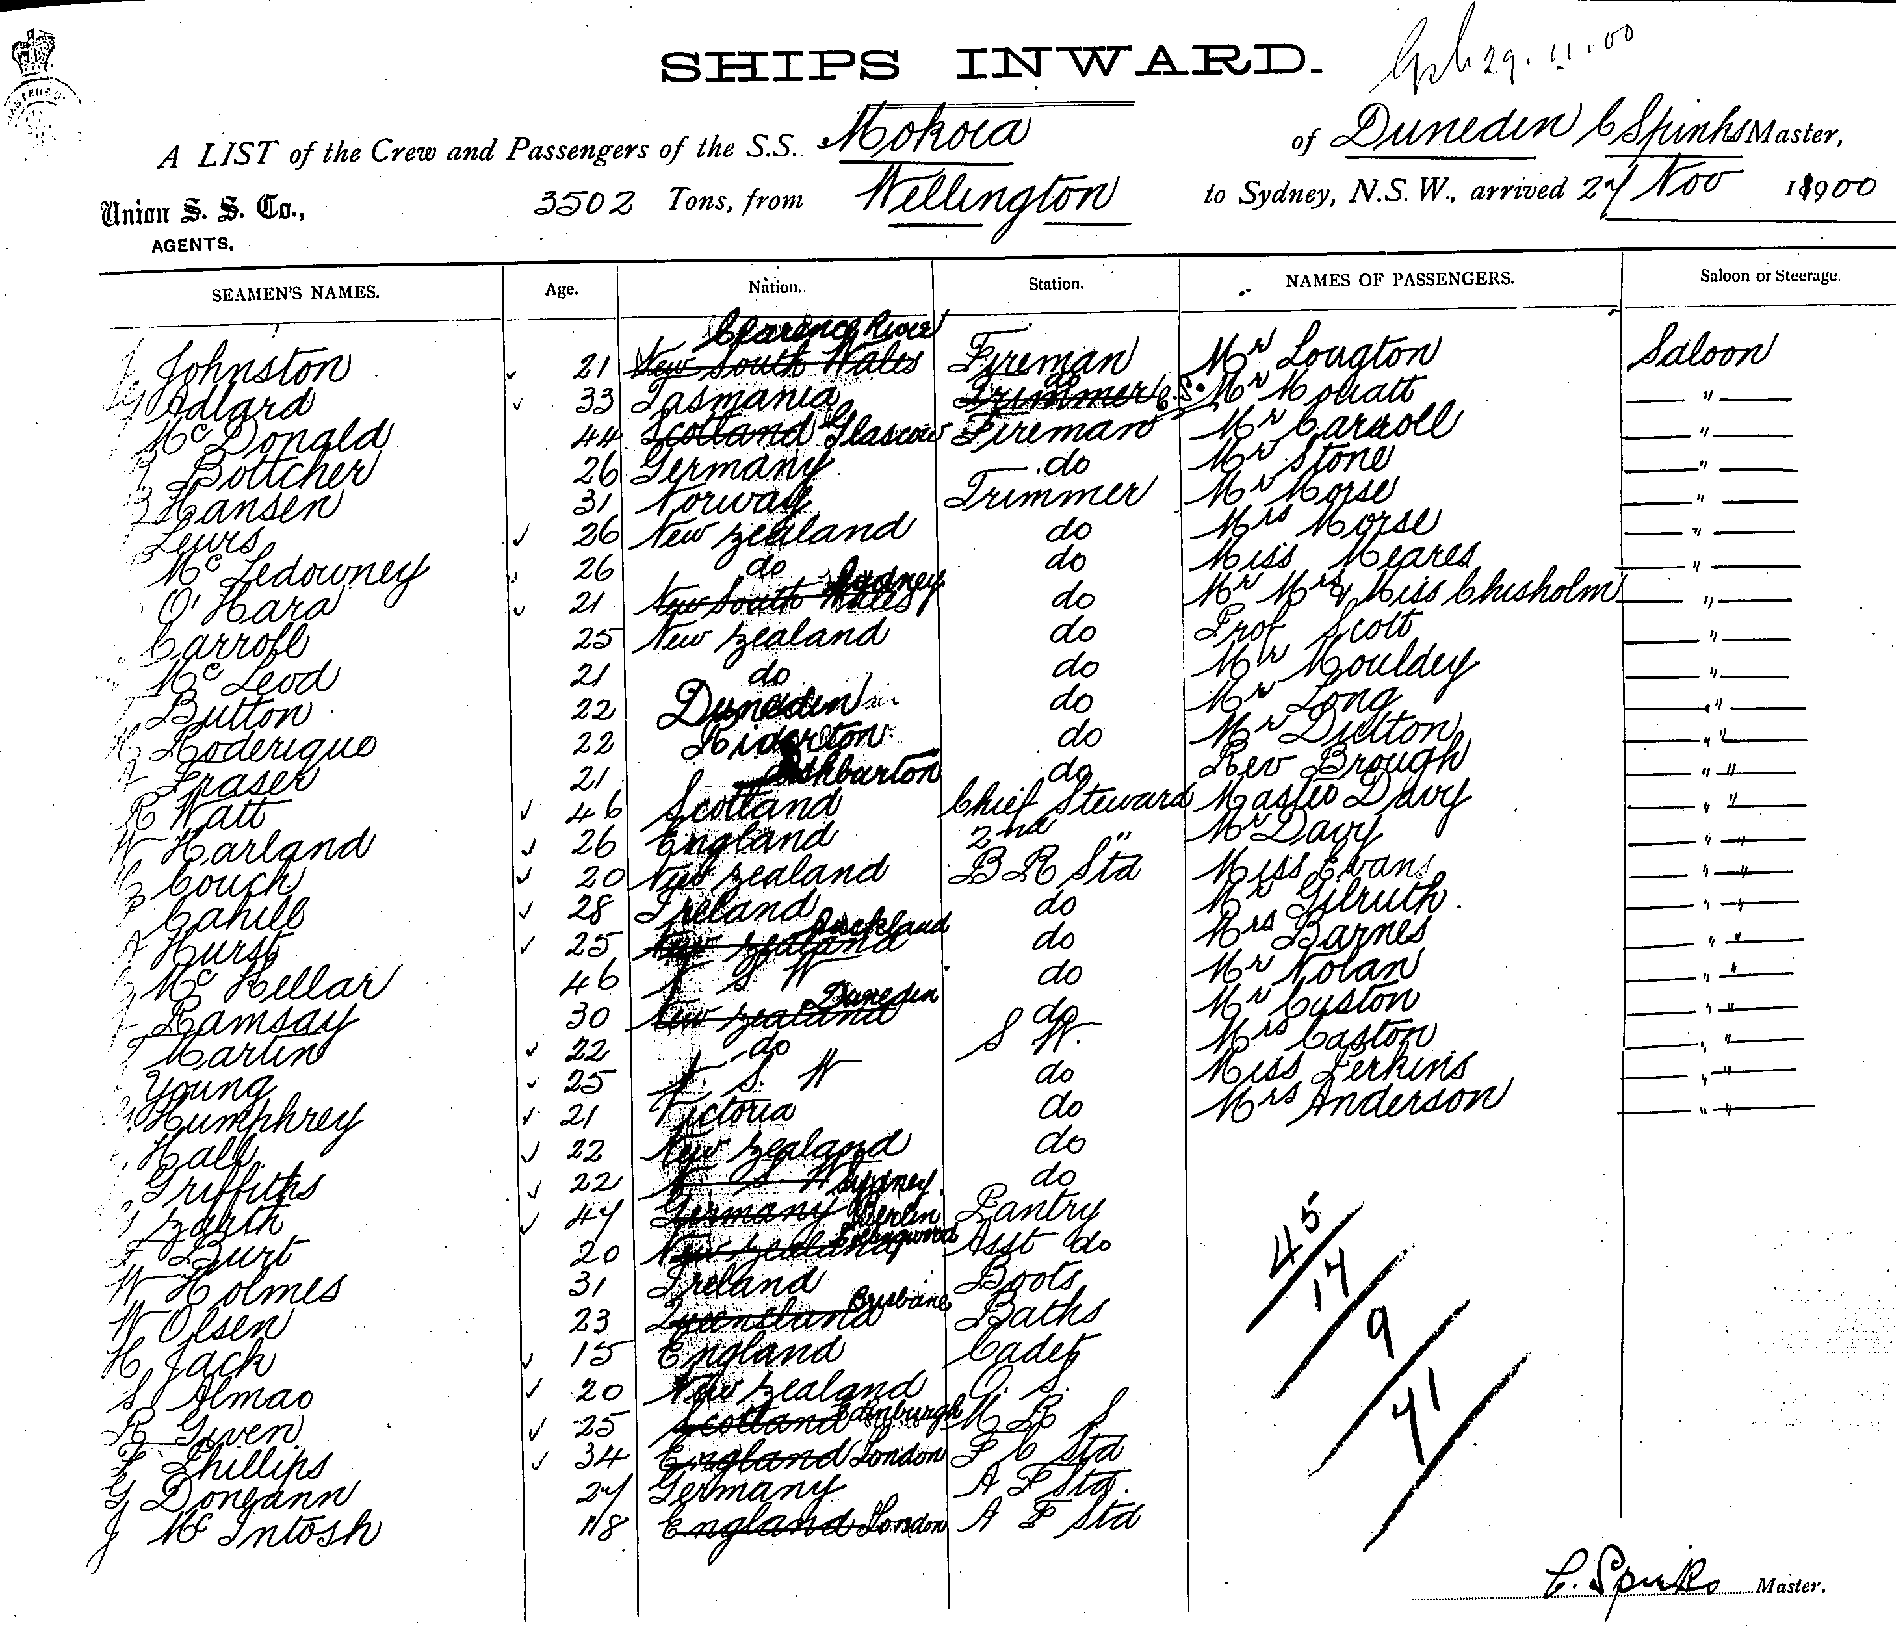 SHIPS INWARD.
29.11.00
A LIST of the Crew and Passengers of the S.S. Mokoia of Duneden C Spinks Master,
Union S. S. Co., 3502 Tons, from Wellington to Sydney, N.S.W., arrived 27 Nov 1900
AGENTS.
SEAMEN'S NAMES. Age. Nation. Station. NAMES OF PASSENGERS. Saloon or Steerage.
Clarence River
Johnston 21 New South Wales Fireman Mr Lougton Saloon
Adlard 33 Tasmania Trimmer do Mr Moliatt "
McDonald 44 Scotland Glascow Fireman Mr Carroll "
Bottcher 26 Germany do Mr Stone "
Hansen 31 Norway Trimmer Mr Morse "
Lewis 26 New Zealand do Mrs Morse "
Mc Ledowney 26 do do Miss Meares "
O'Hara 21 New South Wales Sydney do Mr Mrs & Miss Chisholm "
Carroll 25 New Zealand do Prof Scott "
Mc Leod 21 do do Mr Mouldey "
Button 22 Duneden do Mr Long "
H Roderique 22 do Mr Dutton "
A Fraser 21 Ashbarton do Rev Brough "
R Watt 46 Scotland Chief Steward Master Davy "
W Harland 26 England 2nd " Mr Davy "
Couch 20 New Zealand B R Std Miss Evans "
Cahill 28 Ireland do Mr Gilruth "
Hurst 25 New Zealand Auckland do Mrs Barnes "
Mc Kellar 46 N S W do Mr Nolan "
Ramsay 30 New Zealand Duneden do Mr Caston "
Martin 22 do S W. Mrs Caston "
Young 25 N. S. W do Miss Perkins "
Humphrey 21 Victoria do Mrs Anderson "
Hall 22 New Zealand do
Griffiths 22 N S W Sydney do
Zarth 47 Germany Berlin Pantry
F Burt 20 New Zealand Asst do
W Holmes 31 Ireland Boots
W Olsen 23 Queensland Brisbane Baths
H Jack 15 England Cadet
S Almao 20 New Zealand O. S.
R Given 25 Scotland Edinburgh M R S
F Phillips 34 England London F C Std
G Dongann 27 Germany A F Std.
J McIntosh 18 England London A F Std
45
14
9
41
C. Spinks Master.